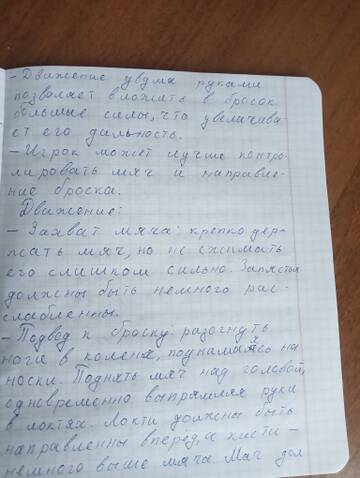 - Движение двумя руками
позволяет вложить в бросок
большие силы, что увеличива-
ет его дальность.
- Игрок может лучше контро-
лировать мяч и направле-
ние броска.
Движение:
- Захват мяча: крепко дер-
жать мяч, но не сжимать
его слишком сильно. Запястья
должны быть немного рас-
слабленны.
- Подвод к броску: разогнуть
ноги в коленях, поднимаясь на
носки. Поднять мяч над головой,
одновременно выпрямляя руки
в локтях. Локти должны быть
направленны вперед, а кисти -
немного выше мяча. Мяч дол